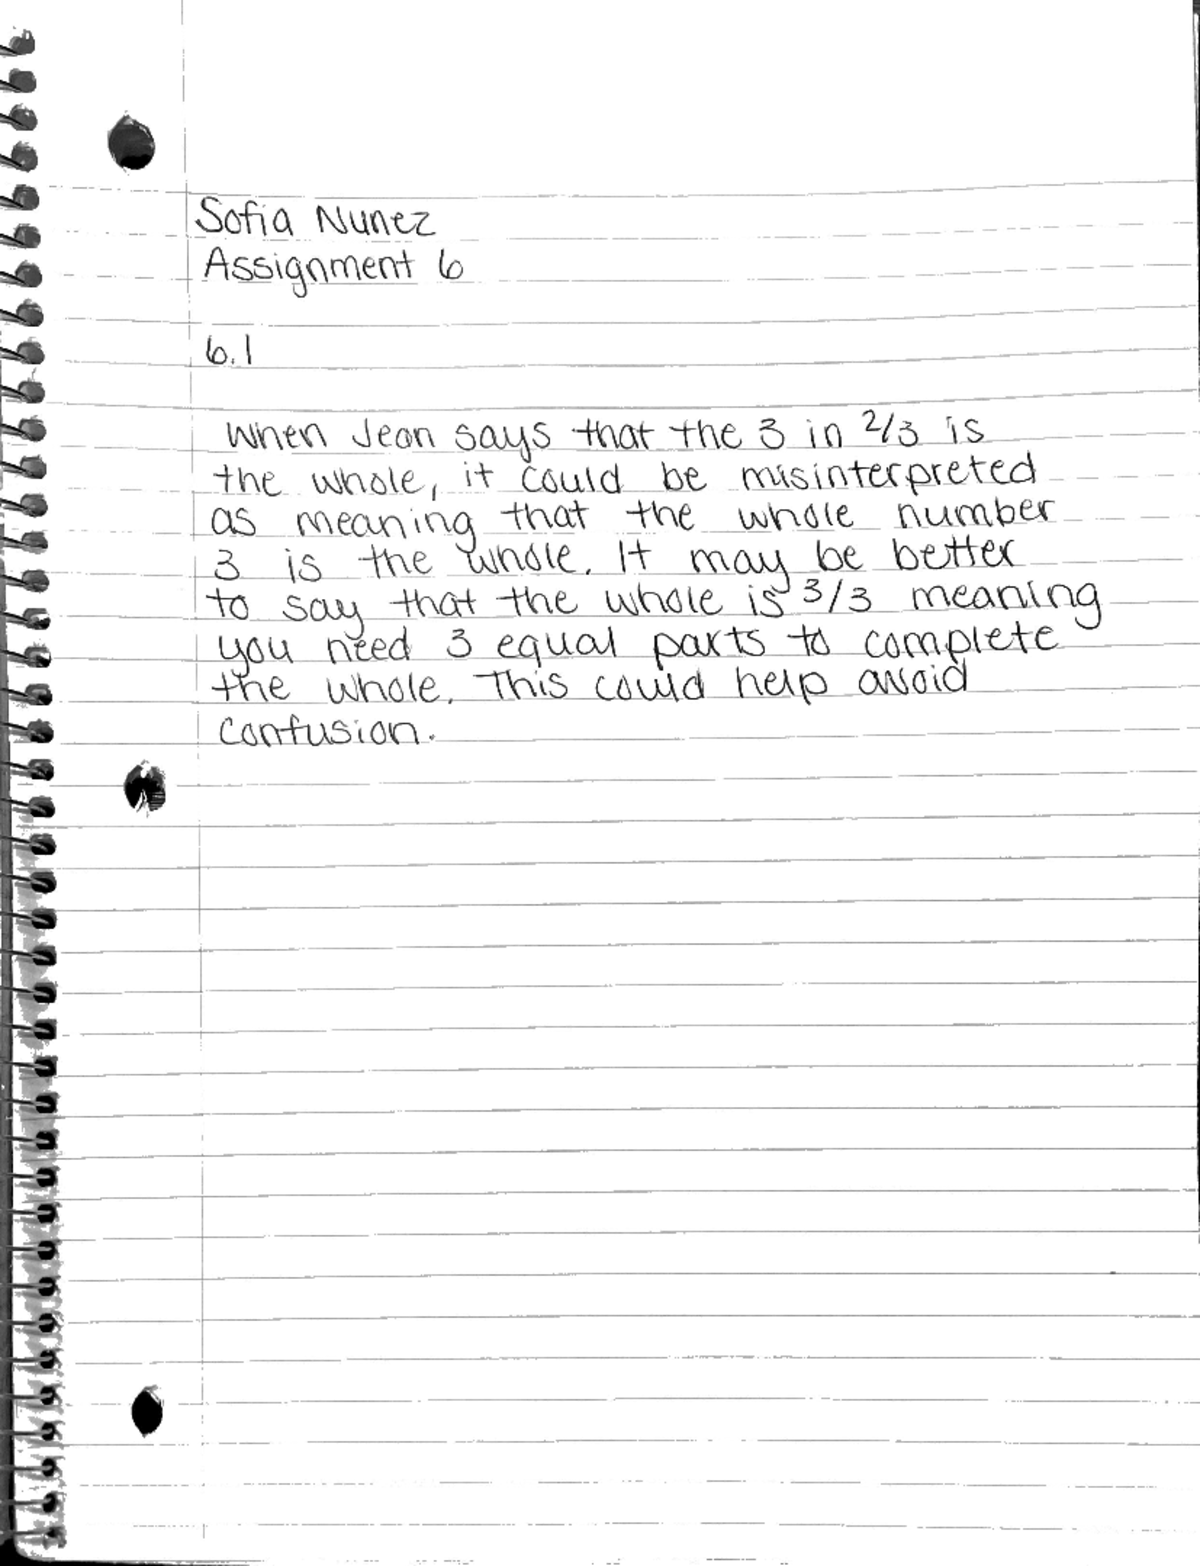 Sofia Nunez
Assignment 6
6.1
When Jean says that the 3 in 2/3 is
the whole, it could be misinterpreted
as meaning that the whole number
3 is the whole. It may be better
to say that the whole is 3/3 meaning
you need 3 equal parts to complete
the whole. This could help avoid
confusion.